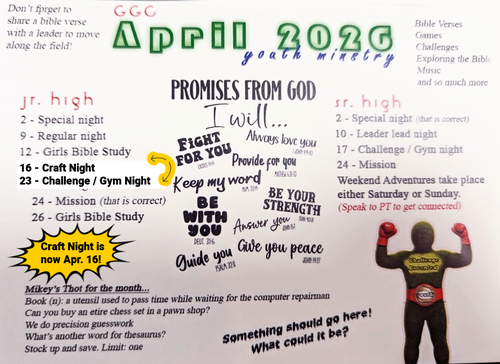 Don't forget to
share a bible verse
with a leader to move
along the field!
GGC
April 2026
youth minstry
Bible Verses
Games
Challenges
Exploring the Bible
Music
and so much more
jr. high
2 - Special night
9 - Regular night
12 - Girls Bible Study
16 - Craft Night
23 - Challenge / Gym Night
24 - Mission (that is correct)
26 - Girls Bible Study
Craft Night is
now Apr. 16!
PROMISES FROM GOD
I will...
FIGHT
FOR YOU
Always love you
Provide for you
Keep my word
BE
WITH
YOU
DEUT. 31:6
BE YOUR
STRENGTH
Answer you
Guide you
Give you peace
JOHN 14:27
sr. high
2 - Special night (that is correct)
10 - Leader lead night
17 - Challenge / Gym night
24 - Mission
Weekend Adventures take place
either Saturday or Sunday.
(Speak to PT to get connected)
Challenge
Accepted
Mikey's Thot for the month...
Book (n): a utensil used to pass time while waiting for the computer repairman
Can you buy an etire chess set in a pawn shop?
We do precision guesswork
What's another word for thesaurus?
Stock up and save. Limit: one
Something should go here!
What could it be?